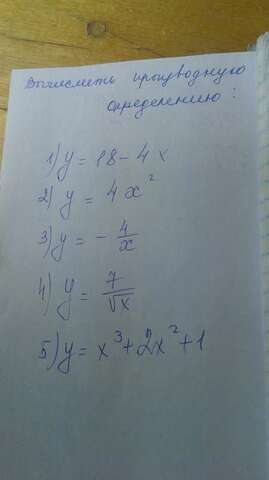 Вычислить производную
определению:
1) y = 18 - 4x
2) y = 4x²
3) y = - 4/x
4) y = 7/√x
5) y = x³ + 2x² + 1